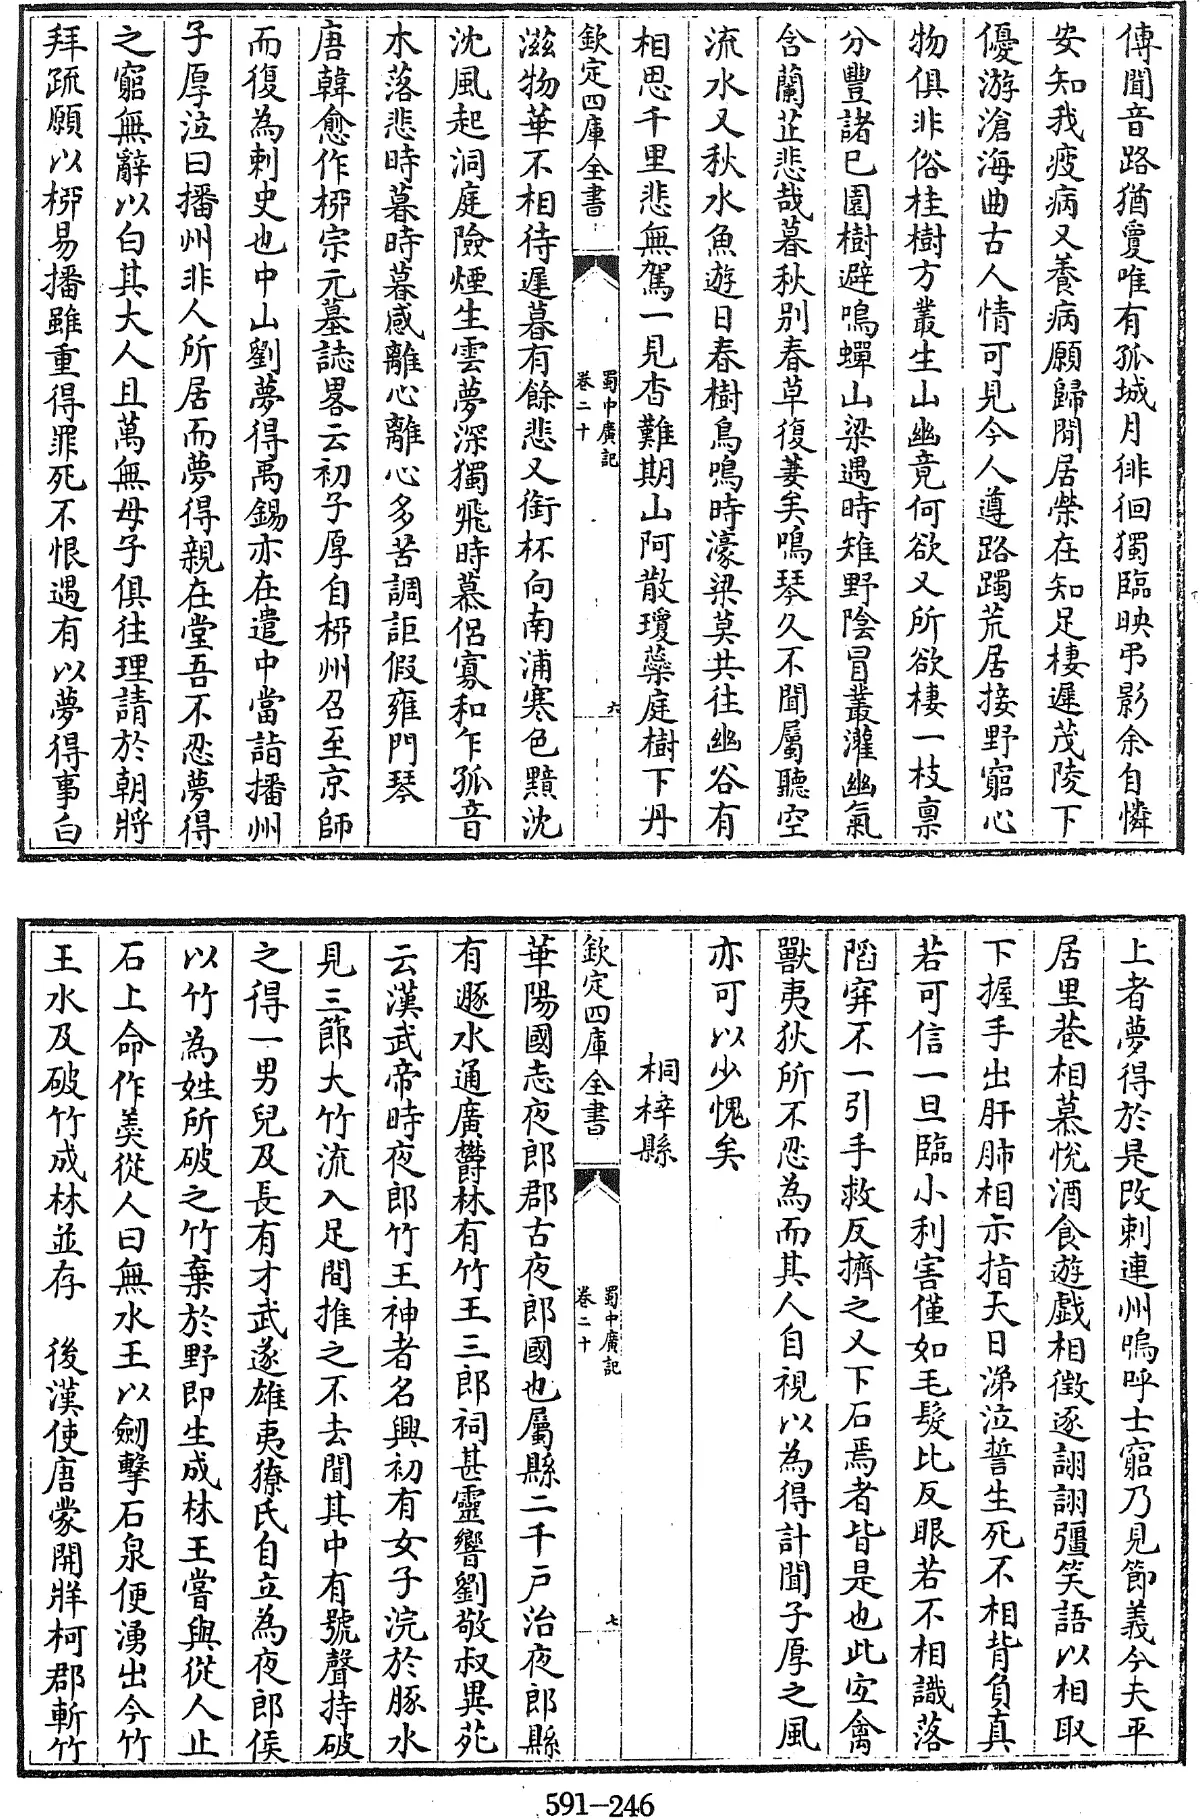 傳聞音路猶敻唯有孤城月徘徊獨臨映弔影余自憐
安知我疲病又養病願歸閒居榮在知足棲遲茂陵下
優游滄海曲古人情可見今人遵路躅荒居接野窮心
物俱非俗桂樹方叢生山幽竟何欲又所欲棲一枝稟
分豐諸已園樹避鳴蟬山梁遇時雉野陰冒叢灌幽氣
含蘭芷悲哉暮秋别春草復萋矣鳴琴久不聞屬聽空
流水又秋水魚遊日春樹鳥鳴時濠梁莫共往幽谷有
相思千里悲無駕一見杳難期山阿散瓊蘂庭樹下丹
欽定四庫全書
蜀中廣記
卷二十
六
滋物華不相待遲暮有餘悲又銜杯向南浦寒色黯沈
沈風起洞庭險煙生雲夢深獨飛時慕侶寡和乍孤音
木落悲時暮時暮感離心離心多苦調詎假雍門琴
唐韓愈作栁宗元墓誌畧云初子厚自栁州召至京師
而復為刺史也中山劉夢得禹錫亦在遣中當詣播州
子厚泣曰播州非人所居而夢得親在堂吾不忍夢得
之窮無辭以白其大人且萬無母子俱往理請於朝將
拜疏願以栁易播雖重得罪死不恨遇有以夢得事白
上者夢得於是改刺連州嗚呼士窮乃見節義今夫平
居里巷相慕悅酒食遊戲相徵逐詡詡彊笑語以相取
下握手出肝肺相示指天日涕泣誓生死不相背負真
若可信一旦臨小利害僅如毛髮比反眼若不相識落
陷穽不一引手救反擠之又下石焉者皆是也此宜禽
獸夷狄所不忍為而其人自視以為得計聞子厚之風
亦可以少愧矣
桐梓縣
欽定四庫全書
蜀中廣記
卷二十
七
華陽國志夜郎郡古夜郎國也屬縣二千戸治夜郎縣
有遯水通廣鬱林有竹王三郎祠甚靈響劉敬叔異苑
云漢武帝時夜郎竹王神者名興初有女子浣於豚水
見三節大竹流入足間推之不去聞其中有號聲持破
之得一男兒及長有才武遂雄夷獠氏自立為夜郎侯
以竹為姓所破之竹棄於野即生成林王嘗與從人止
石上命作羮從人曰無水王以劒擊石泉便湧出今竹
王水及破竹成林並存　後漢使唐蒙開牂柯郡斬竹
591-246